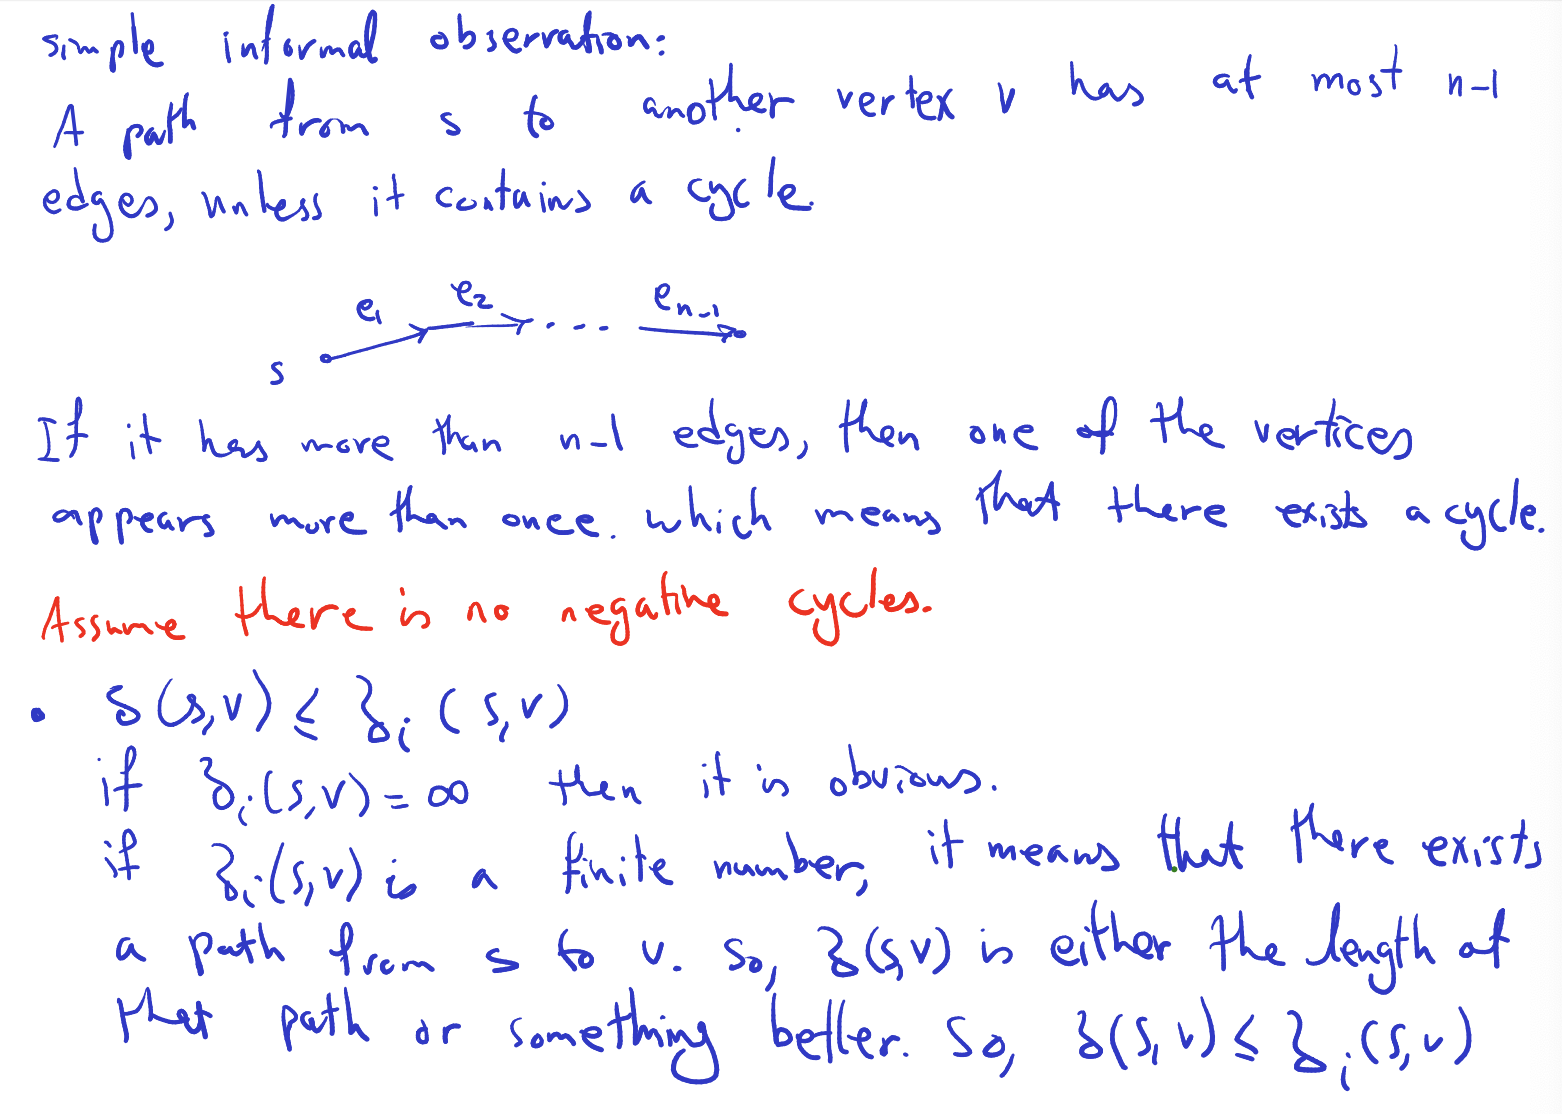 simple informal observation:
A path from s to another vertex v has at most n-1
edges, unless it contains a cycle.
e₁ e₂ .... eₙ₋₁
s
If it has more than n-1 edges, then one of the vertices
appears more than once. which means that there exists a cycle.
Assume there is no negative cycles.
• δ(s,v) ≤ δᵢ(s,v)
if δᵢ(s,v) = ∞ then it is obvious.
if δᵢ(s,v) is a finite number, it means that there exists
a path from s to v. So, δ(s,v) is either the length of
that path or something better. So, δ(s,v) ≤ δᵢ(s,v)